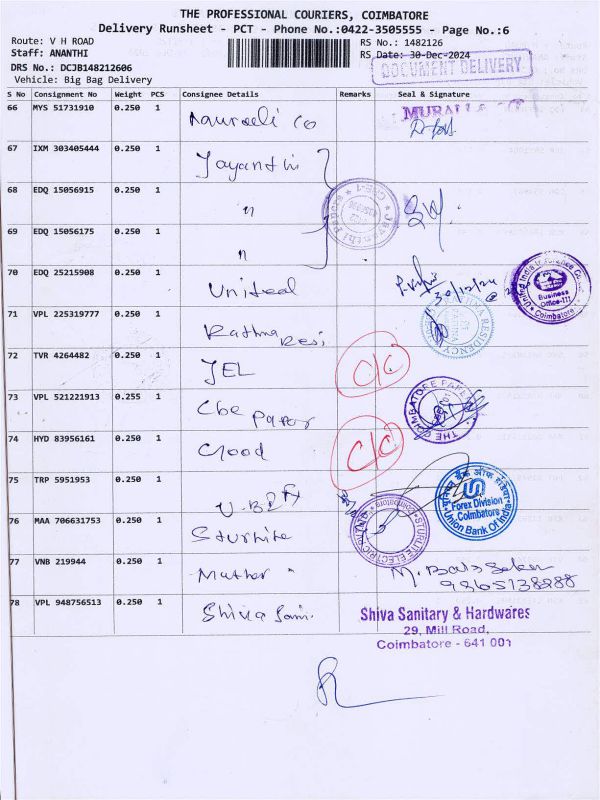 THE PROFESSIONAL COURIERS, COIMBATORE
Delivery Runsheet - PCT - Phone No.:0422-3505555 - Page No.:6
Route: V H ROAD RS No.: 1482126
Staff: ANANTHI RS Date: 30-Dec-2024
DRS No.: DCJB148212606 DOCUMENT DELIVERY
Vehicle: Big Bag Delivery
S No Consignment No Weight PCS Consignee Details Remarks Seal & Signature
66 MYS 51731910 0.250 1
67 IXM 303405444 0.250 1 Jayanthi
68 EDQ 15056915 0.250 1 "
69 EDQ 15056175 0.250 1 "
70 EDQ 25215908 0.250 1 United 30/12/24
United India Insurance Business Office-III Coimbatore
71 VPL 225319777 0.250 1 Rathna Resi
RESIDENCY
72 TVR 4264482 0.250 1 JEL C/C
73 VPL 521221913 0.255 1 Cbe paper
THE COIMBATORE PAPER
74 HYD 83956161 0.250 1 Good C/C
75 TRP 5951953 0.250 1
यूनियन बैंक ऑफ इंडिया
Forex Division
Coimbatore
Union Bank Of India
76 MAA 706631753 0.250 1 Sturlite
STURLITE ELECTRIC Coimbatore
77 VNB 219944 0.250 1 Mather "
78 VPL 948756513 0.250 1 Shiva Sani.
Shiva Sanitary & Hardwares
29, Mill Road,
Coimbatore - 641 001